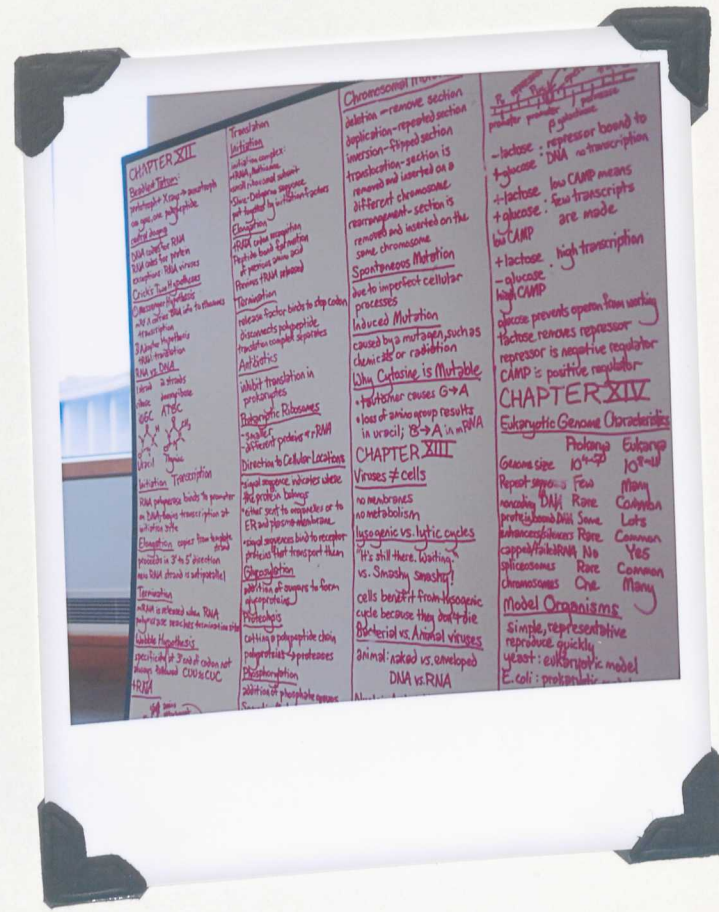 CHAPTER XII
Beadle & Tatum:
one gene, one polypeptide
central dogma
DNA codes for RNA
RNA codes for protein
exceptions: RNA viruses
Crick's Two Hypotheses
① Messenger Hypothesis
transcription
② Adapter Hypothesis
tRNA translation
RNA vs DNA
1 strand 2 strands
ribose deoxyribose
Uracil Thymine
Initiation Transcription
RNA polymerase binds to promoter
on DNA, begins transcription at
initiation site
Elongation copies from template strand
proceeds in 3' to 5' direction
new RNA strand is antiparallel
Termination
mRNA is released when RNA
polymerase reaches termination site
Wobble Hypothesis
specificity at 3' end of codon not
always followed CUU & CUC
tRNA
Translation
Initiation
initiation complex:
• tRNA, Methionine
• small ribosomal subunit
• Shine-Dalgarno sequence
put together by initiation factors
Elongation
tRNA codon recognition
Peptide bond formation
of previous amino acid
Previous tRNA released
Termination
release factor binds to stop codon
disconnects polypeptide
translation complex separates
Antibiotics
inhibit translation in
prokaryotes
Prokaryotic Ribosomes
- smaller
- different proteins & rRNA
Direction to Cellular Locations
• signal sequence indicates where
the protein belongs
• either sent to organelles or to
ER and plasma membrane
• signal sequences bind to receptor
proteins that transport them
Glycosylation
addition of sugars to form
glycoproteins
Proteolysis
cutting a polypeptide chain
polyproteins → proteases
Phosphorylation
addition of phosphate groups
Chromosomal
deletion - remove section
duplication - repeated section
inversion - flipped section
translocation - section is
removed and inserted on a
different chromosome
rearrangement - section is
removed and inserted on the
same chromosome
Spontaneous Mutation
due to imperfect cellular
processes
Induced Mutation
caused by a mutagen, such as
chemicals or radiation
Why Cytosine is Mutable
• tautomer causes G→A
• loss of amino group results
in uracil; G→A in mRNA
CHAPTER XIII
Viruses ≠ cells
no membranes
no metabolism
lysogenic vs. lytic cycles
"It's still there. Waiting."
vs. Smashy smashy!
cells benefit from lysogenic
cycle because they don't die
Bacterial vs. Animal viruses
animal: naked vs. enveloped
DNA vs. RNA
promoter promoter
β galactosidase
- lactose : repressor bound to
+ glucose : DNA no transcription
+ lactose low CAMP means
+ glucose : few transcripts
low CAMP are made
+ lactose : high transcription
- glucose
high CAMP
glucose prevents operon from working
lactose removes repressor
repressor is negative regulator
CAMP is positive regulator
CHAPTER XIV
Eukaryotic Genome Characteristics
Prokarya Eukarya
Genome size
Repeat sequences Few Many
noncoding DNA Rare Common
protein bound DNA Some Lots
enhancers/silencers Rare Common
capped/tailed RNA No Yes
spliceosomes Rare Common
chromosomes One Many
Model Organisms
simple, representative
reproduce quickly
yeast : eukaryotic model
E. coli : prokaryotic model